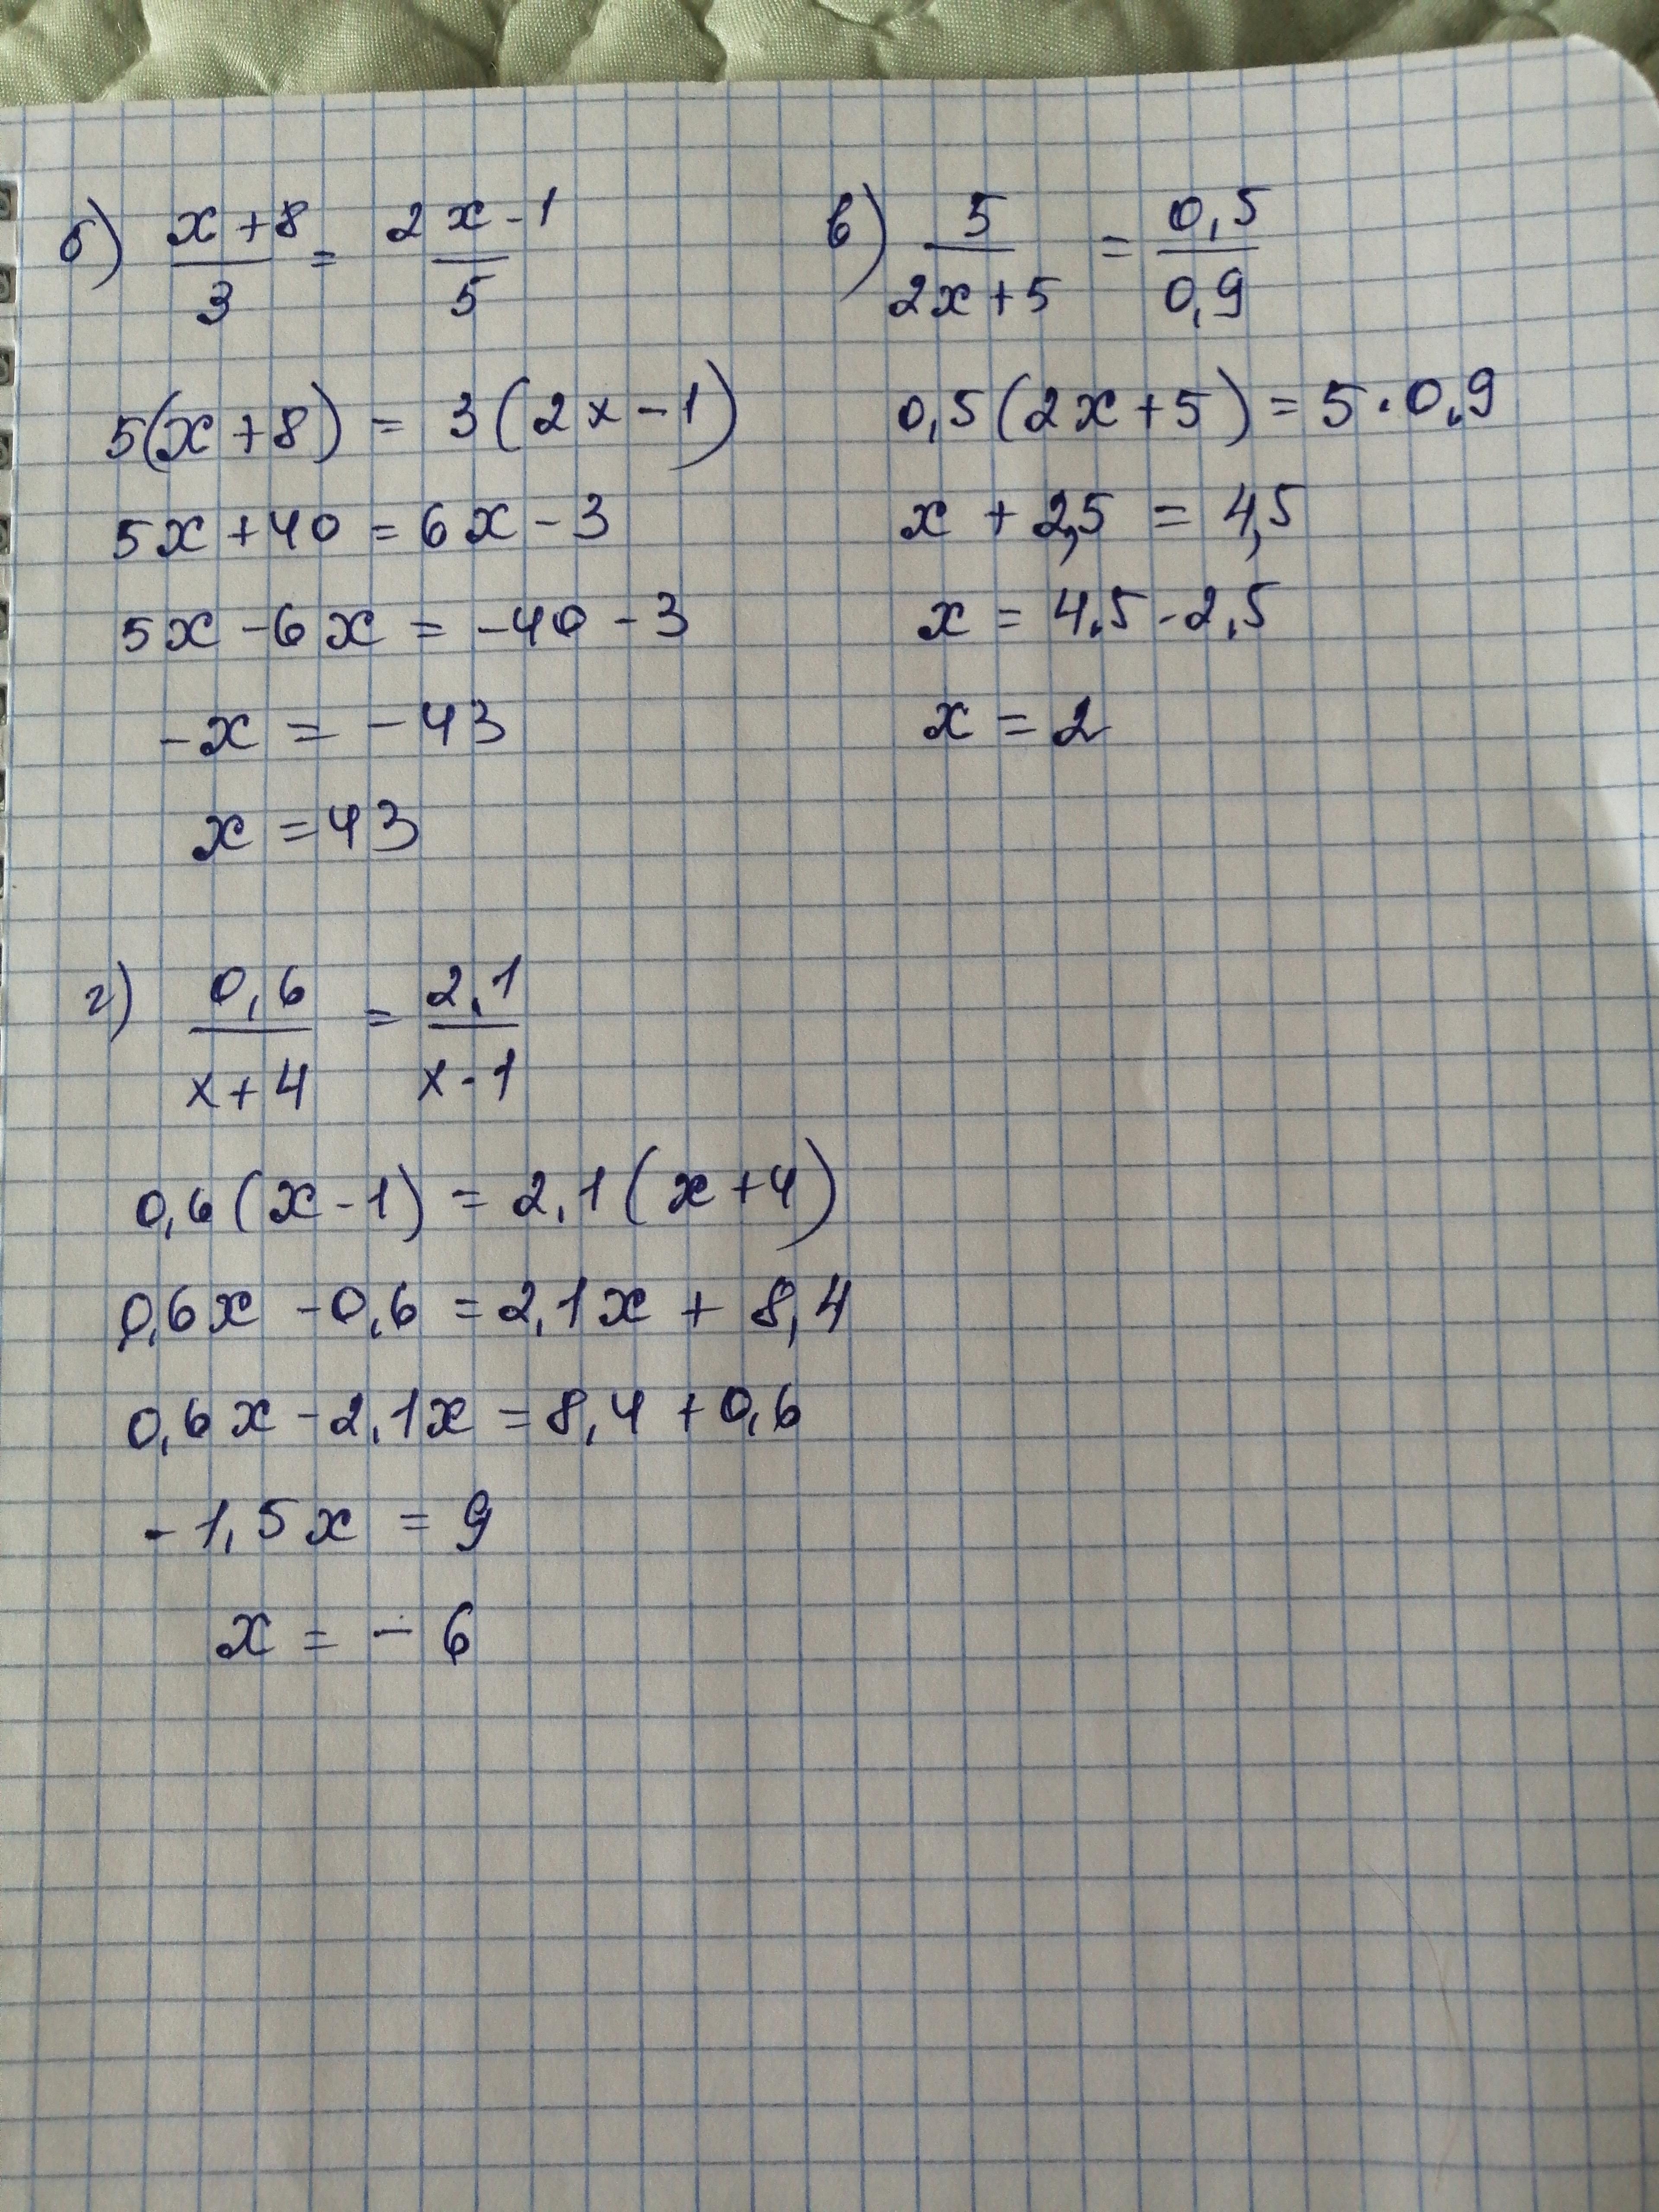 б) x+8/3 = 2x-1/5
5(x+8) = 3(2x-1)
5x+40 = 6x-3
5x-6x = -40-3
-x = -43
x = 43
в) 5/2x+5 = 0,5/0,9
0,5(2x+5) = 5·0,9
x + 2,5 = 4,5
x = 4,5-2,5
x = 2
г) 0,6/x+4 = 2,1/x-1
0,6(x-1) = 2,1(x+4)
0,6x - 0,6 = 2,1x + 8,4
0,6x - 2,1x = 8,4 + 0,6
-1,5x = 9
x = -6